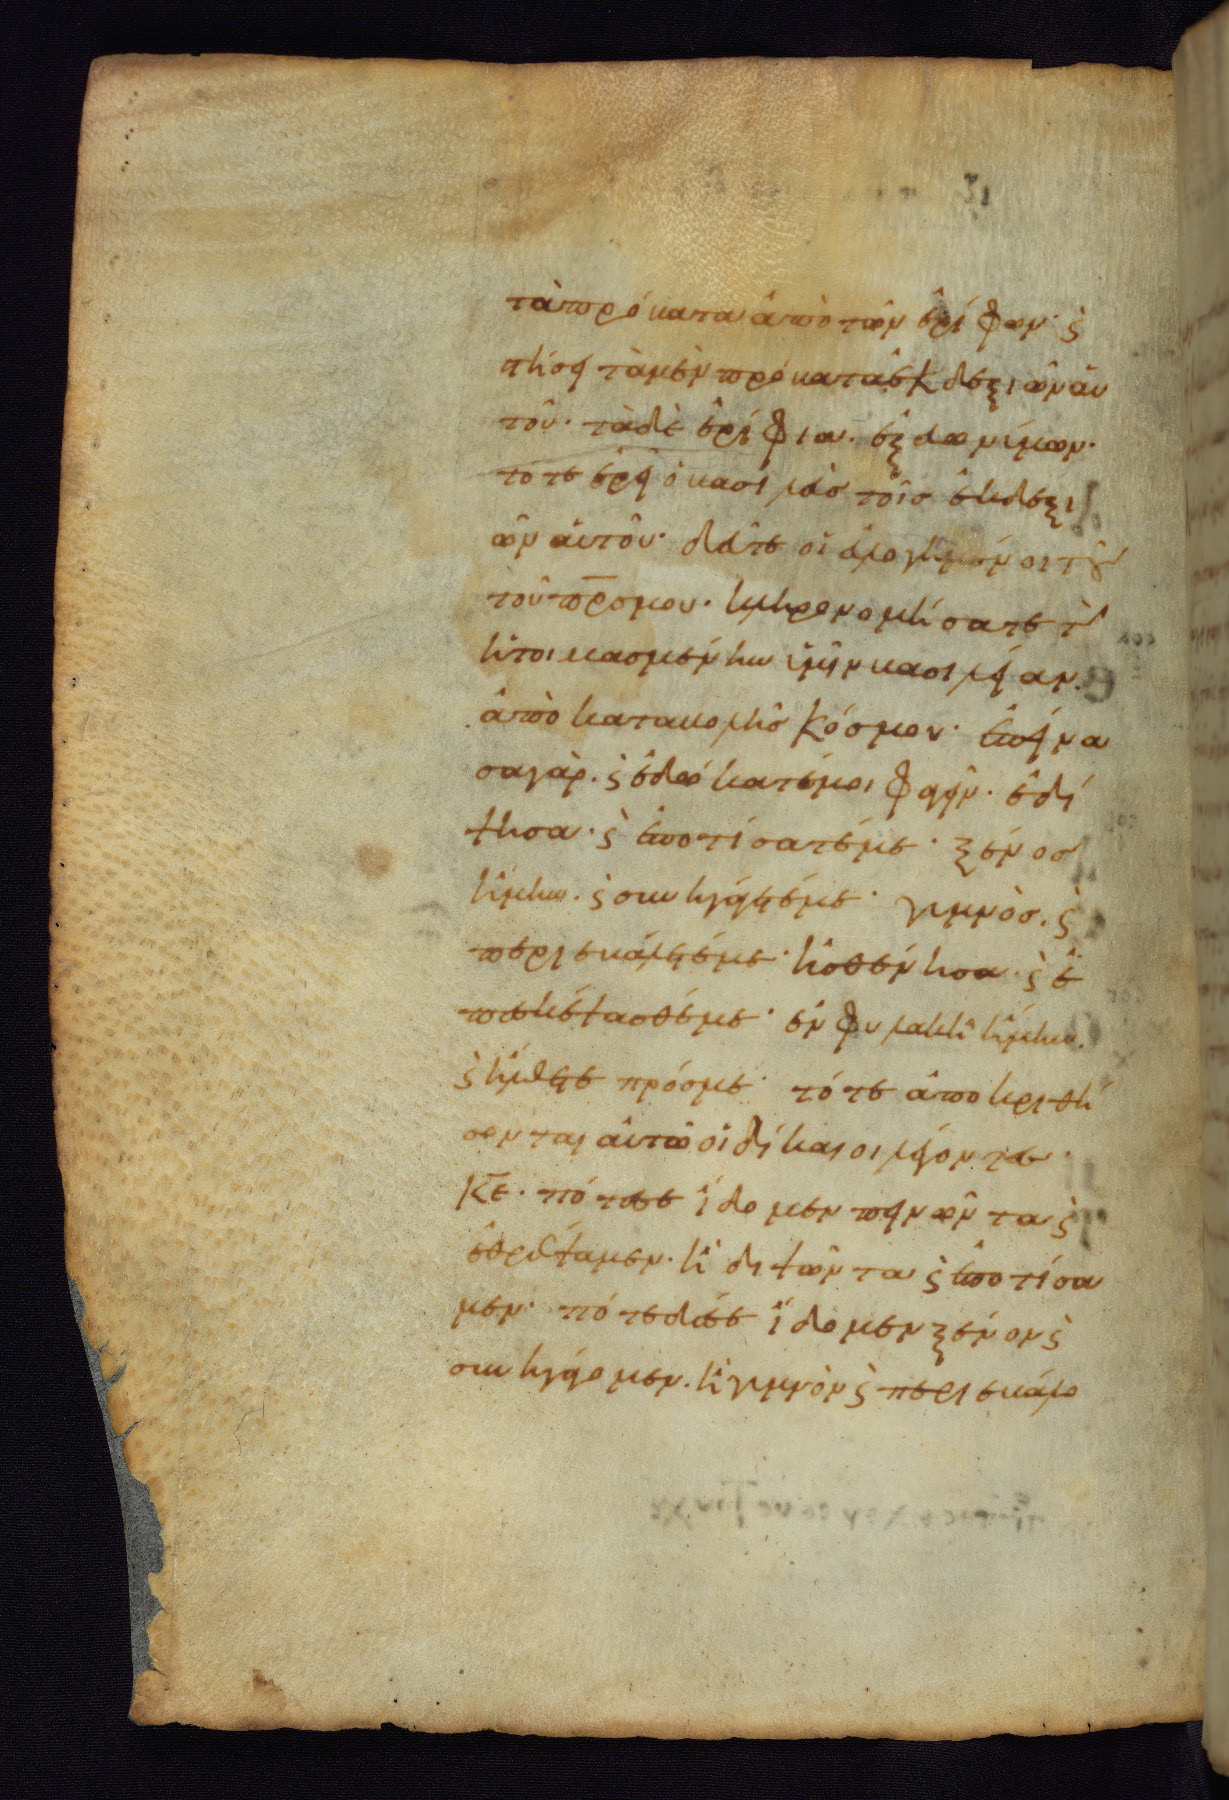 τὰ πρόβατα ἀπὸ τῶν ἐρίφων· ϛ
στήσει τὰ μὲν πρόβατα ἐκ δεξιῶν αὐ
τοῦ· τὰ δὲ ἐρίφια· ἐξ εὐωνύμων·
τότε ἐρεῖ ὁ βασιλεὺσ τοῖσ ἐκ δεξι
ῶν αὐτοῦ· δεῦτε οἱ εὐλογημένοι
τοῦ πρσ μου· κληρονομήσατε τὴν
ἡτοιμασμένην ὑμῖν βασιλείαν·
ἀπὸ καταβολῆσ κόσμου· ἐπείνα
σα γὰρ· ϛ ἐδώκατέ μοι φαγεῖν· ἐδί
ψησα· ϛ ἐποτίσατέ με· ξένοσ
ἤμην· ϛ συνηγάγετέ με· γυμνὸσ· ϛ
περιεβάλετέ με· ἠσθένησα· ϛ ἐ
πεσκέψασθέ με· ἐν φυλακῆ ἤμην·
ϛ ἤλθετε πρόσ με· τότε ἀποκριθή
σονται αὐτῶ οἱ δίκαιοι λέγοντεσ·
κε· πότε σε ἴδομεν πεινῶντα ϛ
ἐθρέψαμεν· ἢ διψῶντα ϛ ἐποτίσα
μεν· πότε δέ σε ἴδομεν ξένον ϛ
συνηγάγομεν· ἢ γυμνὸν ϛ περιεβάλο